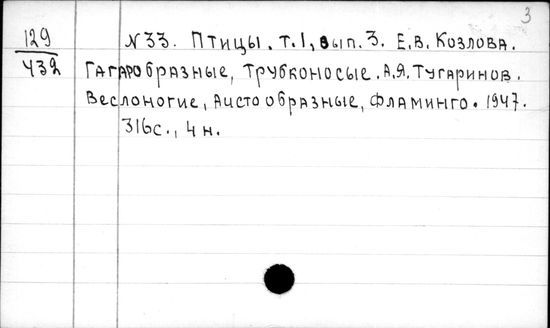 3
129
432
N 33. Птицы. т.1, вып. 3. Е.В. Козлова.
Гагарообразные, Трубконосые. А.Я. Тугаринов.
Веслоногие, Аистообразные, Фламинго. 1947.
316с., 4н.